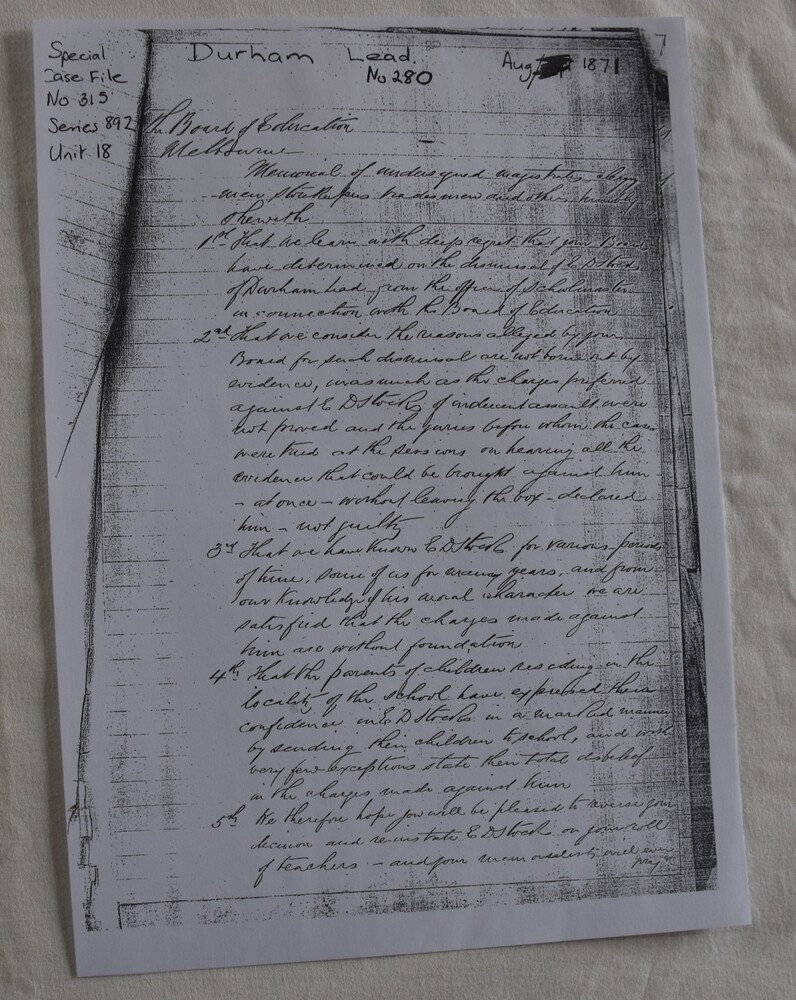 Special
Case File
No 315
Series 892
Unit 18
Durham Lead.
No 280
Aug 1871
7
The Board of Education
Melbourne
Memorial of undersigned magistrates clergy
-men Storekeepers tradesmen and others humbly
Sheweth
1st That we learn with deep regret that your Board
have determined on the dismissal of E D Stocks
of Durham Lead from the office of Schoolmaster
in connection with the Board of Education
2nd That we consider the reasons alleged by your
Board for such dismissal are not borne out by
evidence, inasmuch as the charges preferred
against E D Stocks of indecent assault were
not proved and the juries before whom the cases
were tried at the sessions on hearing all the
evidence that could be brought against him
- at once - without leaving the box - declared
him - not guilty
3rd That we have known E D Stocks for various periods
of time, some of us for many years, and from
our knowledge of his moral character we are
satisfied that the charges made against
him are without foundation
4th That the parents of children residing in the
locality of the school have expressed their
confidence in E D Stocks in a marked manner
by sending their children to school, and with
very few exceptions state their total disbelief
in the charges made against him
5th We therefore hope you will be pleased to reverse your
decision and re-instate E D Stocks on your roll
of teachers - and your memorialists will ever
pray